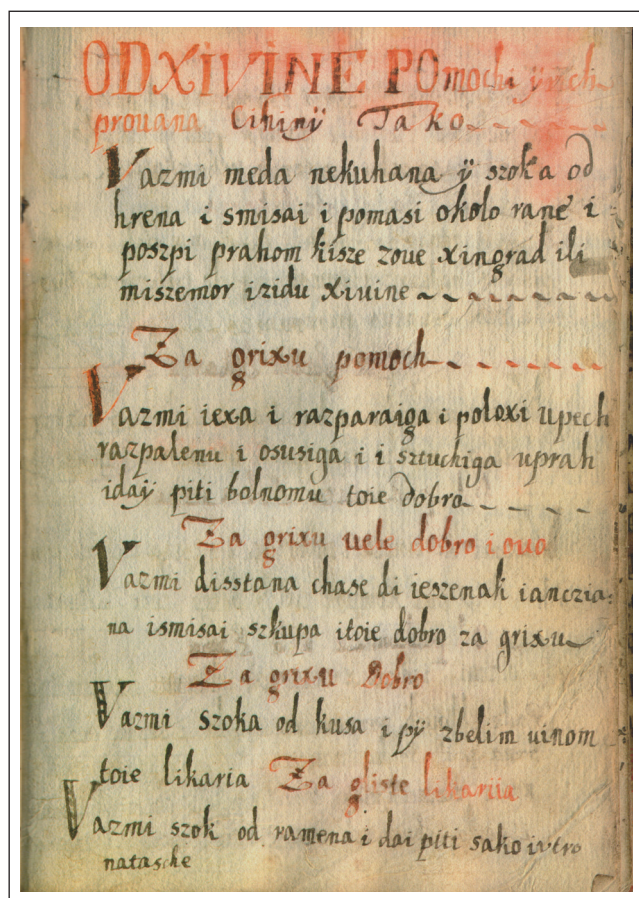 ODXIVINE POmochi ÿzich
prouana Cihinÿ Tako
Vazmi meda nekuhana ÿ szoka od
hrena i smisai i pomasi okolo rane i
poszpi prahom kisze zoue xingrad ili
miszemor izidu xiuine
Za grixu pomoch
Vazmi iexa i razparaiga i poloxi upech
razpalenu i osusiga i i sztuchiga uprah
idaÿ piti bolnomu toie dobro
Za grixu uele dobro i ouo
Vazmi disstana chase di ieszenak ianczia:
na ismisai szkupa itoie dobro za grixu
Za grixu Dobro
Vazmi szoka od kusa i pÿ zbelim uinom
toie likaria Za gliste likariia
Vazmi szok od ramena i dai piti sako iutro
natasche